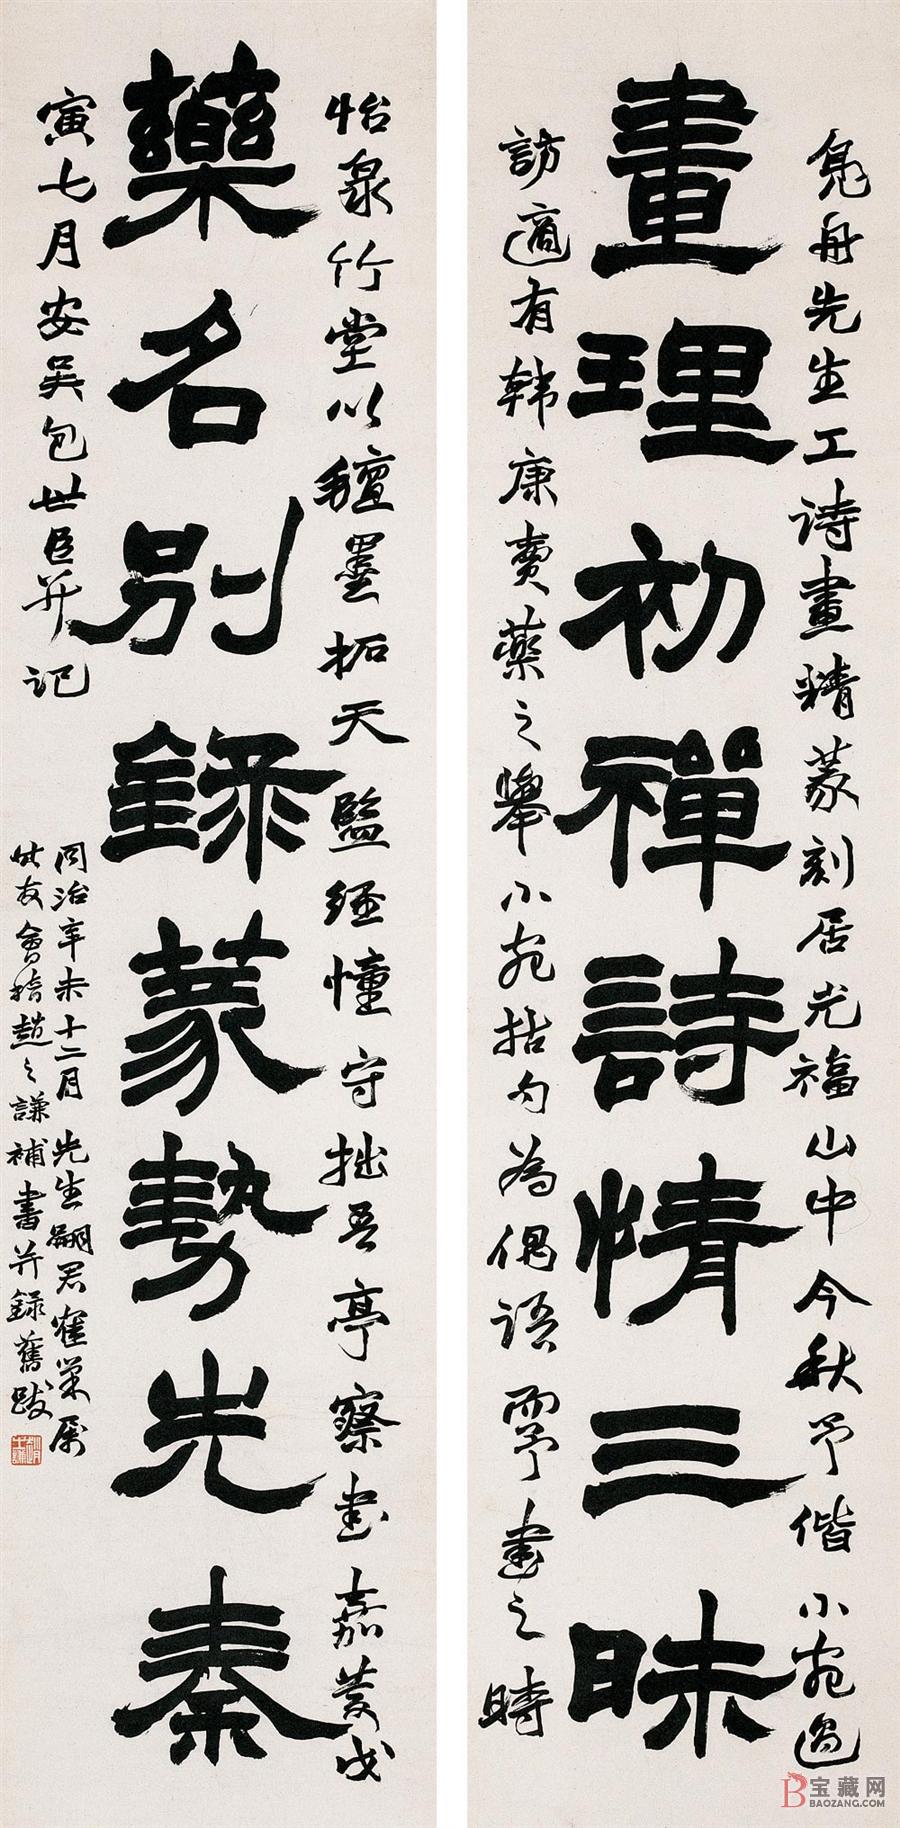 鳧舟先生工詩畫精篆刻居光福山中今秋予偕小宛過
畫理初禪詩情三昧
訪適有韓康賣藥之舉小宛拈句為偶語而予書之時
怡泉竹堂以氊墨拓天監經幢守拙吾亭察書嘉慶戊
藥名別錄篆勢先秦
寅七月安吳包世臣并記
同治辛未十二月 先生嗣君隺巢屬
世友會稽趙之謙補書并錄舊跋
宝藏网
BAOZANG.COM